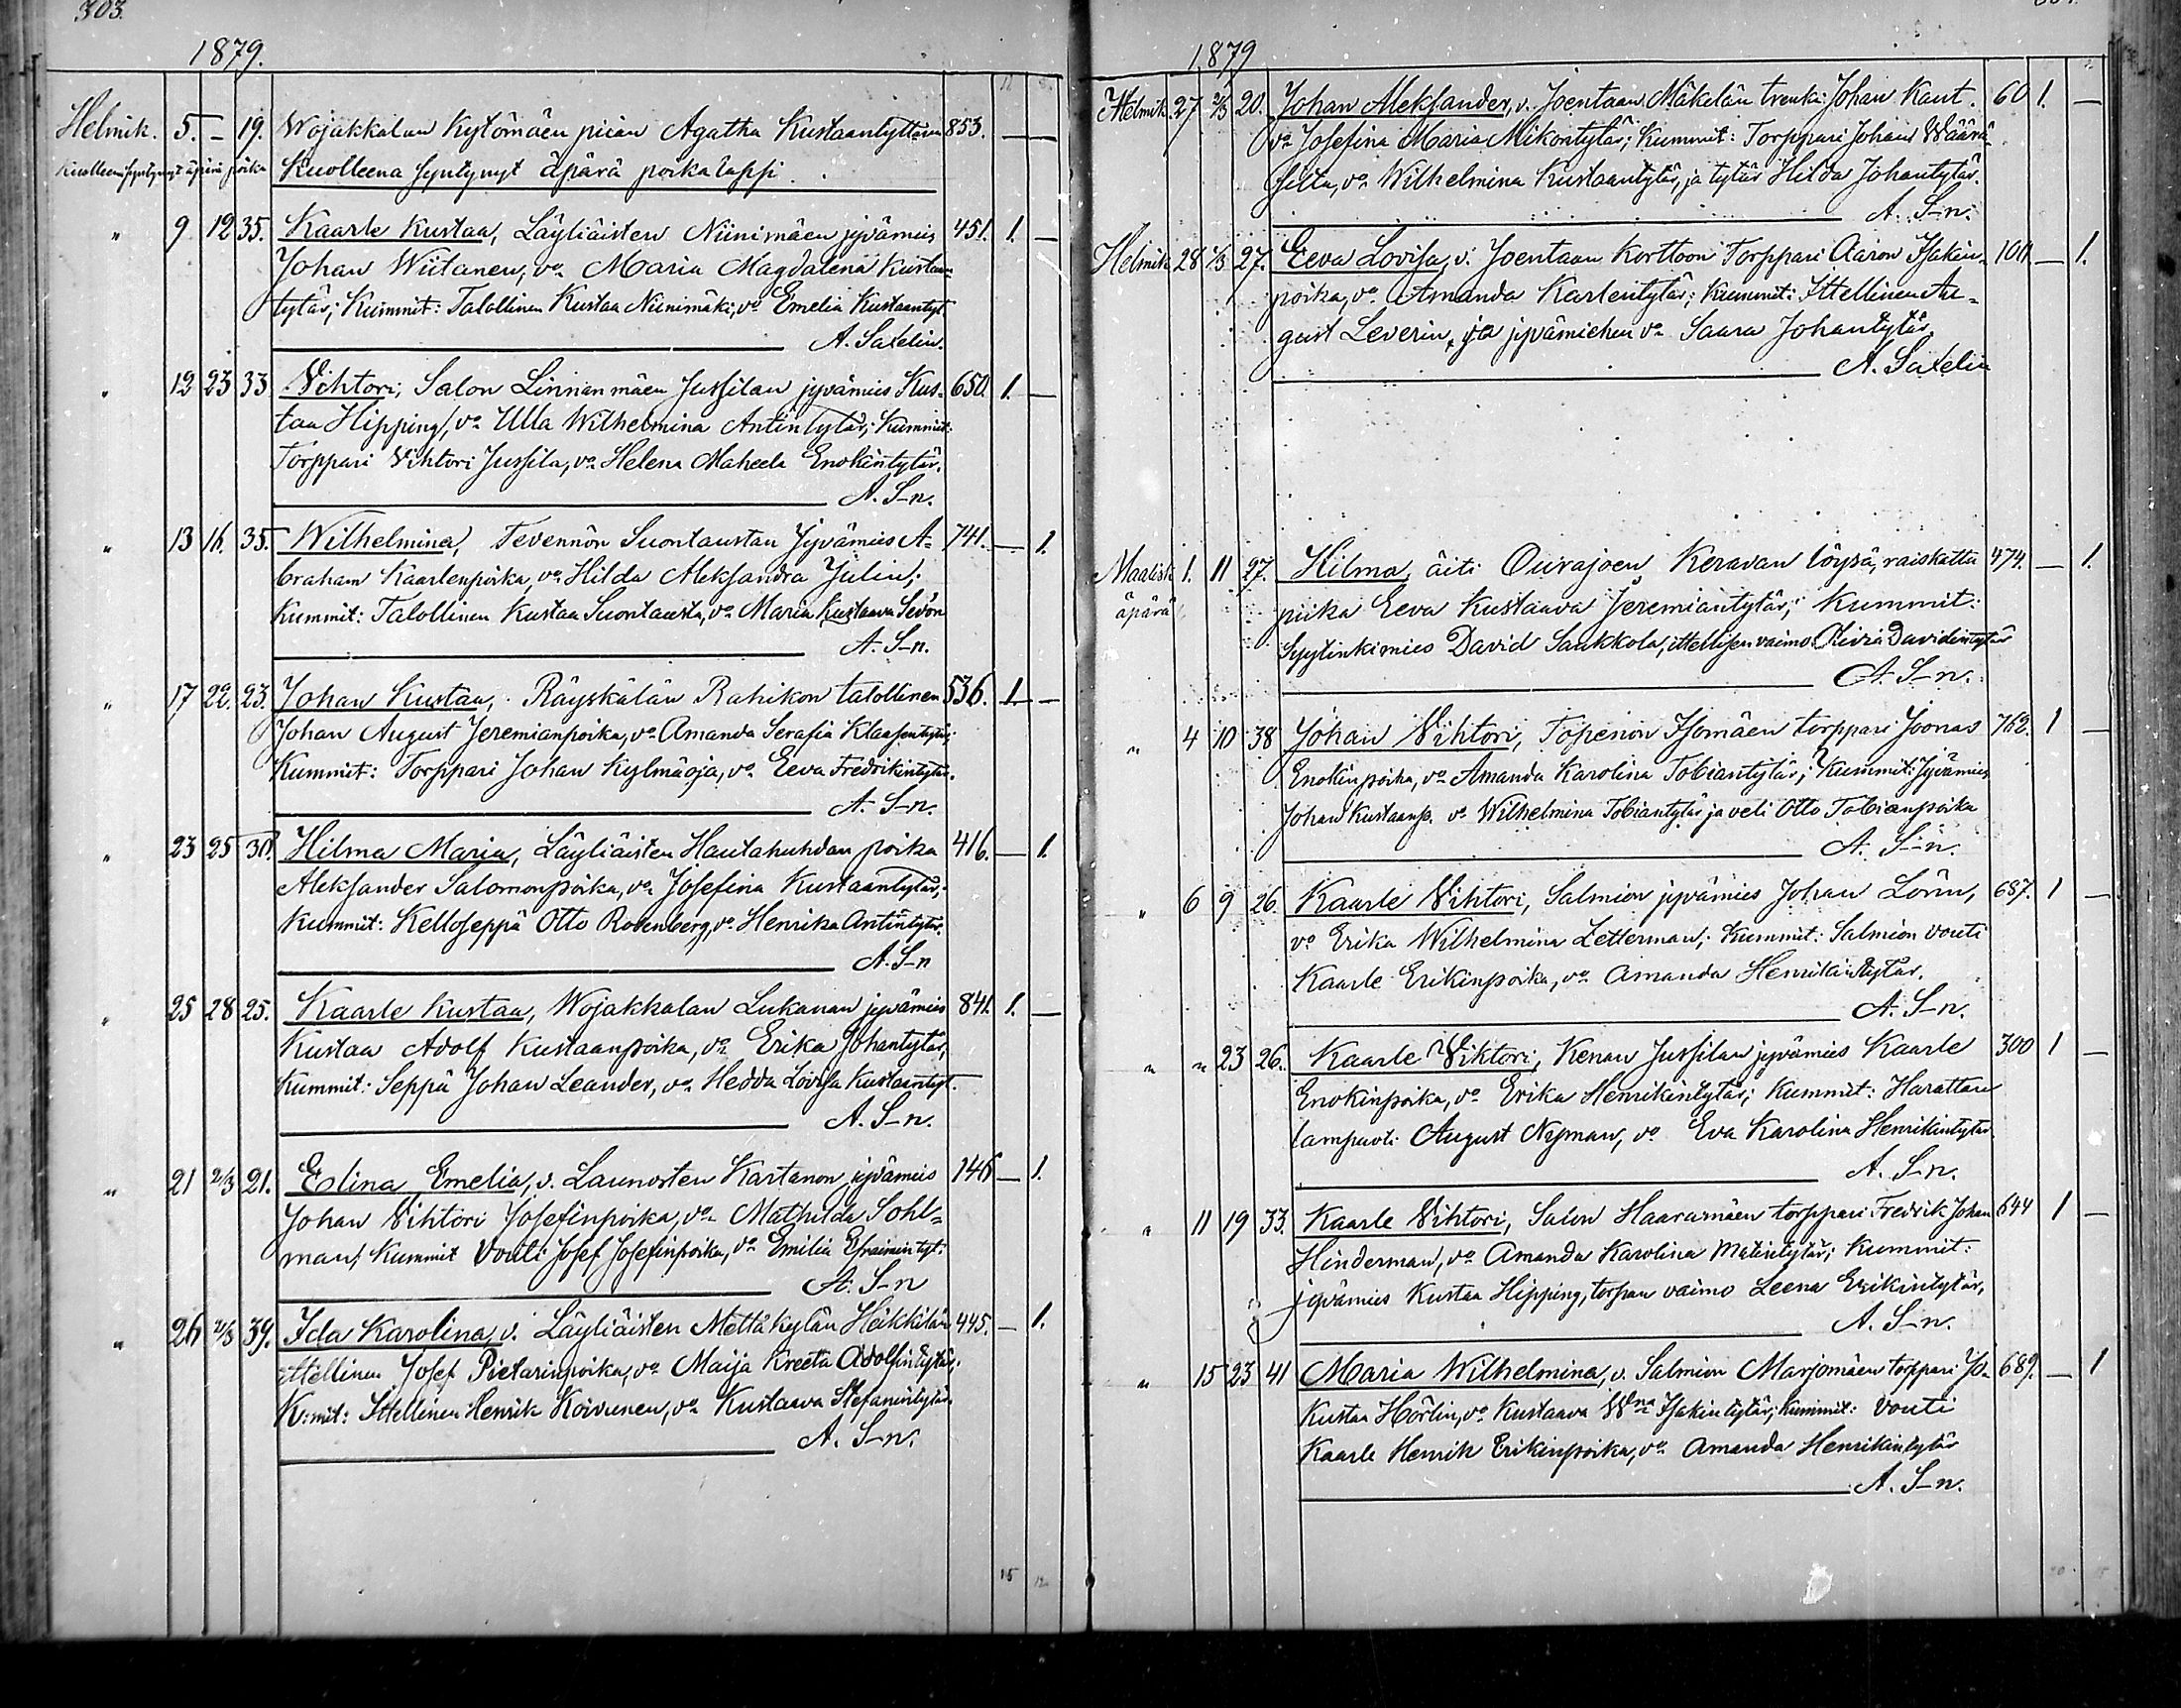 303.
1879.
Helmik. 5. – 19. Wojakkalan Kytömäen piian Agatha Kustaantyttären 853. — —
Kuolleena syntynyt äpärä poika Kuolleena syntynyt äpärä poikalapsi.
" 9 12 35. Kaarle Kustaa, Läyliäisten Niinimäen jyvämies 451. 1. —
Johan Wiitanen, vo Maria Magdalena Kustaan-
tytär; Kummit: Talollinen Kustaa Niinimäki, vo Emelia Kustaantyt.
A. Saxelin.
" 12 23 33 Vihtori, Salon Linnanmäen Jussilan jyvämies Kus- 650. 1. —
taa Hipping, vo Ulla Wilhelmina Antintytär; Kummit:
Torppari Vihtori Jussila, vo Helena Maheela Enokintytär.
A. S–n.
" 13 16. 35. Wilhelmina, Tevennön Suontaustan Jyvämies A- 741. — 1.
braham Kaarlenpoika, vo Hilda Aleksandra Julin;
Kummit: Talollinen Kustaa Suontausta, vo Maria Kustaava Sevón
A. S–n.
" 17 22. 23. Johan Kustaa, Räyskälän Rahikon talollinen 536. 1 —
Johan August Jeremianpoika, vo Amanda Serafia Klaasentytär;
Kummit: Torppari Johan Kylmäoja, vo Eeva Fredrikintytär.
A. S–n.
" 23 25 30. Hilma Maria, Läyliäisten Hautahuhdan poika 416. — 1.
Aleksander Salomonpoika, vo Josefina Kustaantytär;
Kummit: Kelloseppä Otto Rosenberg, vo Henrika Antintytär.
A. S–n
" 25 28 25. Kaarle Kustaa, Wojakkalan Lukanan jyvämies 841. 1. —
Kustaa Adolf Kustaanpoika, vo Erika Johantytär,
Kummit: Seppä Johan Leander, vo Hedda Lovisa Kustaantyt.
A. S–n.
" 21 2/3 21. Elina Emelia, v. Launosten Kartanon jyvämies 146 — 1.
Johan Vihtori Josefinpoika, vo Mathilda Sohl-
man; Kummit Vouti Josef Josefinpoika, vo Emilia Efraimintyt:
A. S–n
" 26 2/3 39. Ida Karolina v. Läyliäisten Mettäkylän Heikkilän 445. — 1.
ittellinen Josef Pietarinpoika, vo Maija Kreeta Adolfintytär;
K:mit: Ittellinen Henrik Koivunen, vo Kustaava Stefanintytär.
A. S–n.
1879
Helmik. 27 2/3 20. Johan Aleksander, v. Joentaan Mäkelän trenki Johan Kant. 60 1. —
vo Josefina Maria Mikontytär; Kummit: Torppari Johan Wäänä-
Wilhelmina Kustaantytär, ja tytär Hilda Johantytär.
A. S–n.
Helmik 28 2/3 27. Eeva Lovisa, v. Joentaan Korttoon Torppari Aaron Isakin- — 1.
poika, vo Amanda Karlentytär; Kummit: Ittellinen Au-
gust Leverin, ja jyvämiehen vo Saara Johantytär.
A. Saxelin
Maalisk 1. 11 27. Hilma, äiti Ourajoen Keravan löysä, raiskattu 474. — 1.
äpärä piika Eeva Kustaava Jeremiantytär; Kummit:
Syytinkimies David Saukkola, ittellisen vaimo Davidintytär
A. S–n.
" 4 10 38 Johan Vihtori, Topenon Isomäen torppari Joonas 762. 1 —
Enokinpoika, vo Amanda Karolina Tobiantytär; Kummit: Jyvämies
Johan Kustaanp. vo Wilhelmina Tobiantytär ja veli Otto Tobianpoika
A. S–n.
" 6 9 26. Kaarle Vihtori, Salmion jyvämies Johan Lörn, 687. 1 —
vo Erika Wilhelmina Zetterman; Kummit: Salmion vouti
Kaarle Erikinpoika, vo Amanda Henrikintytär.
A. S–n.
" " 23 26. Kaarle Viktori, Kenan Jussilan jyvämies Kaarle 300 1 —
Enokinpoika, vo Erika Henrikintytär; Kummit: Harattan
lampuoti August Nyman, vo Eva Karolina Henrikintytär
A. S–n.
" 11 19 33. Kaarle Vihtori, Salon Haaramäen torppari Fredrik Johan 644 1 —
Hinderman, vo Amanda Karolina Matintytär; Kummit:
jyvämies Kustaa Hipping, torpan vaimo Leena Erikintytär,
A. S–n.
" 15 23 41 Maria Wilhelmina, v. Salmion Marjomäen torppari Jo- 689. — 1
Kustaa Hörlin, vo Kustaava Wna Isakintytär; Kummit: Vouti
Kaarle Henrik Erikinpoika, vo Amanda Henrikintytär
A. S–n.